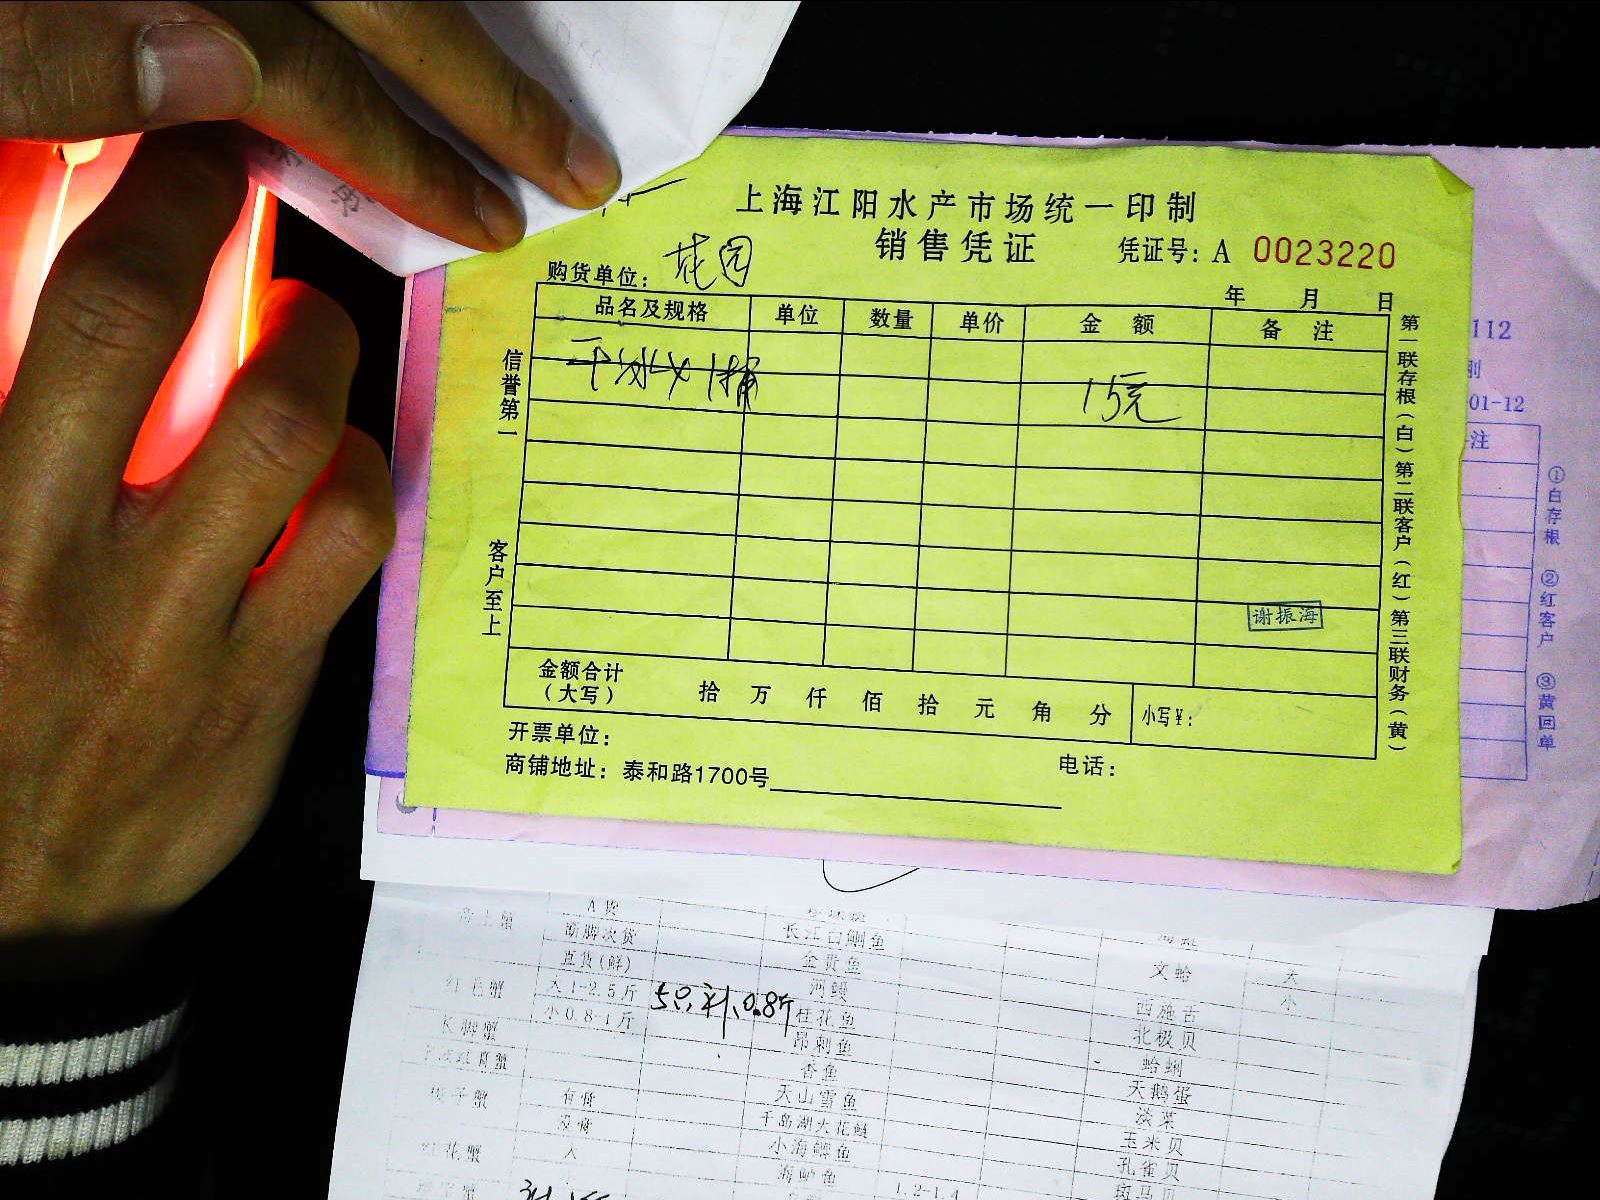 上海江阳水产市场统一印制
销售凭证 凭证号: A 0023220
购货单位: 花园
年 月 日
品名及规格 单位 数量 单价 金额 备注
1桶 15元
谢振海
金额合计
(大写) 拾 万 仟 佰 拾 元 角 分 小写¥:
开票单位:
商铺地址: 泰和路1700号 电话:
信誉第一
客户至上
第一联存根(白)第二联客户(红)第三联财务(黄)
112
01-12
注
①白存根 ②红客户 ③黄回单
A 货
断脚次货 长江白鮰鱼
直货(鲜) 金贵鱼 文蛤 大
红毛蟹 大1-2.5斤 河鳗 小
小0.8-1斤 5只 0.8斤 桂花鱼 西施舌
长脚蟹 昂刺鱼 北极贝
香鱼 蛤蜊
有膏 天山雪鱼 天鹅蛋
没膏 千岛湖大花鲢 淡菜
红花蟹 大 小海鲫鱼 玉米贝
海鲈鱼 孔雀贝
1.2-1.4 斑马贝